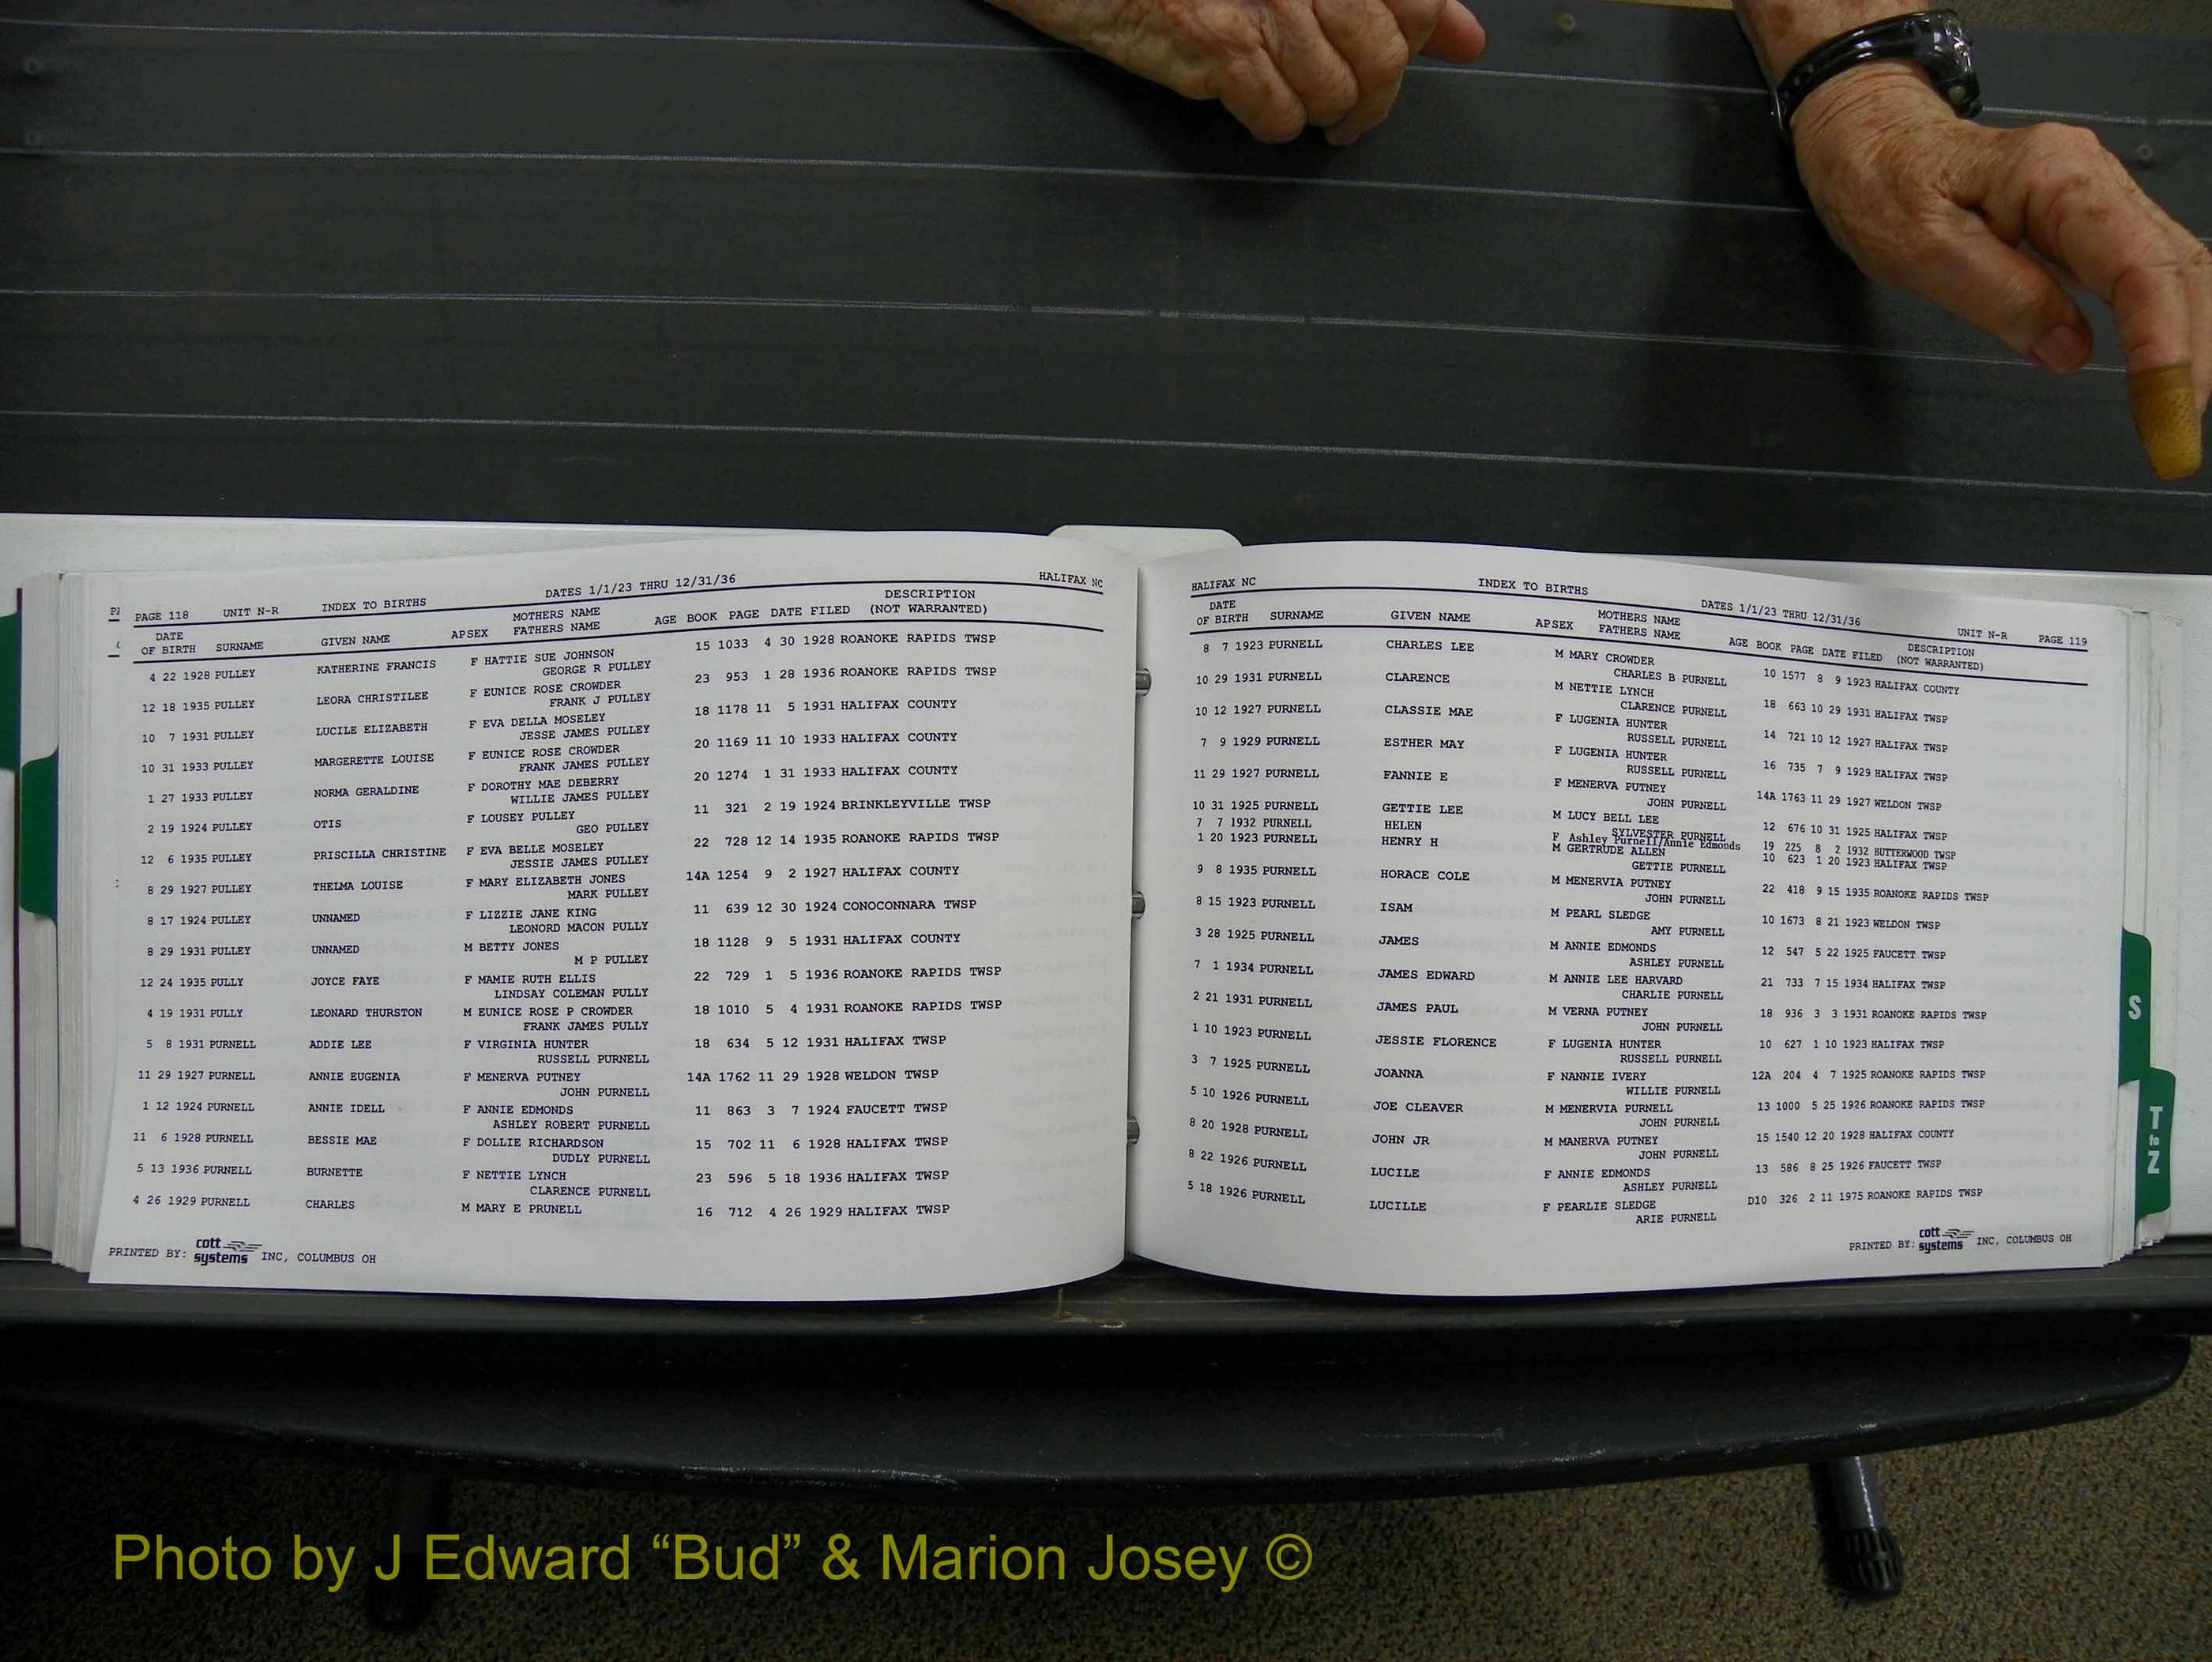 PAGE 118 UNIT N-R INDEX TO BIRTHS DATES 1/1/23 THRU 12/31/36 HALIFAX NC
DATE OF BIRTH SURNAME GIVEN NAME AP SEX MOTHERS NAME FATHERS NAME AGE BOOK PAGE DATE FILED DESCRIPTION (NOT WARRANTED)
4 22 1928 PULLEY KATHERINE FRANCIS F HATTIE SUE JOHNSON 15 1033 4 30 1928 ROANOKE RAPIDS TWSP
GEORGE R PULLEY
12 18 1935 PULLEY LEORA CHRISTILEE F EUNICE ROSE CROWDER 23 953 1 28 1936 ROANOKE RAPIDS TWSP
FRANK J PULLEY
10 7 1931 PULLEY LUCILE ELIZABETH F EVA DELLA MOSELEY 18 1178 11 5 1931 HALIFAX COUNTY
JESSE JAMES PULLEY
10 31 1933 PULLEY MARGERETTE LOUISE F EUNICE ROSE CROWDER 20 1169 11 10 1933 HALIFAX COUNTY
FRANK JAMES PULLEY
1 27 1933 PULLEY NORMA GERALDINE F DOROTHY MAE DEBERRY 20 1274 1 31 1933 HALIFAX COUNTY
WILLIE JAMES PULLEY
2 19 1924 PULLEY OTIS F LOUSEY PULLEY 11 321 2 19 1924 BRINKLEYVILLE TWSP
GEO PULLEY
12 6 1935 PULLEY PRISCILLA CHRISTINE F EVA BELLE MOSELEY 22 728 12 14 1935 ROANOKE RAPIDS TWSP
JESSIE JAMES PULLEY
8 29 1927 PULLEY THELMA LOUISE F MARY ELIZABETH JONES 14A 1254 9 2 1927 HALIFAX COUNTY
MARK PULLEY
8 17 1924 PULLEY UNNAMED F LIZZIE JANE KING 11 639 12 30 1924 CONOCONNARA TWSP
LEONORD MACON PULLY
8 29 1931 PULLEY UNNAMED M BETTY JONES 18 1128 9 5 1931 HALIFAX COUNTY
M P PULLEY
12 24 1935 PULLY JOYCE FAYE F MAMIE RUTH ELLIS 22 729 1 5 1936 ROANOKE RAPIDS TWSP
LINDSAY COLEMAN PULLY
4 19 1931 PULLY LEONARD THURSTON M EUNICE ROSE P CROWDER 18 1010 5 4 1931 ROANOKE RAPIDS TWSP
FRANK JAMES PULLY
5 8 1931 PURNELL ADDIE LEE F VIRGINIA HUNTER 18 634 5 12 1931 HALIFAX TWSP
RUSSELL PURNELL
11 29 1927 PURNELL ANNIE EUGENIA F MENERVA PUTNEY 14A 1762 11 29 1928 WELDON TWSP
JOHN PURNELL
1 12 1924 PURNELL ANNIE IDELL F ANNIE EDMONDS 11 863 3 7 1924 FAUCETT TWSP
ASHLEY ROBERT PURNELL
11 6 1928 PURNELL BESSIE MAE F DOLLIE RICHARDSON 15 702 11 6 1928 HALIFAX TWSP
DUDLY PURNELL
5 13 1936 PURNELL BURNETTE F NETTIE LYNCH 23 596 5 18 1936 HALIFAX TWSP
CLARENCE PURNELL
4 26 1929 PURNELL CHARLES M MARY E PRUNELL 16 712 4 26 1929 HALIFAX TWSP
PRINTED BY: cott systems INC, COLUMBUS OH
HALIFAX NC INDEX TO BIRTHS DATES 1/1/23 THRU 12/31/36 UNIT N-R PAGE 119
DATE OF BIRTH SURNAME GIVEN NAME AP SEX MOTHERS NAME FATHERS NAME AGE BOOK PAGE DATE FILED DESCRIPTION (NOT WARRANTED)
8 7 1923 PURNELL CHARLES LEE M MARY CROWDER 10 1577 8 9 1923 HALIFAX COUNTY
CHARLES B PURNELL
10 29 1931 PURNELL CLARENCE M NETTIE LYNCH 18 663 10 29 1931 HALIFAX TWSP
CLARENCE PURNELL
10 12 1927 PURNELL CLASSIE MAE F LUGENIA HUNTER 14 721 10 12 1927 HALIFAX TWSP
RUSSELL PURNELL
7 9 1929 PURNELL ESTHER MAY F LUGENIA HUNTER 16 735 7 9 1929 HALIFAX TWSP
RUSSELL PURNELL
11 29 1927 PURNELL FANNIE E F MENERVA PUTNEY 14A 1763 11 29 1927 WELDON TWSP
JOHN PURNELL
10 31 1925 PURNELL GETTIE LEE M LUCY BELL LEE 12 676 10 31 1925 HALIFAX TWSP
SYLVESTER PURNELL
7 7 1932 PURNELL HELEN F Ashley Purnell/Annie Edmonds 19 225 8 2 1932 BUTTERWOOD TWSP
1 20 1923 PURNELL HENRY H M GERTRUDE ALLEN 10 623 1 20 1923 HALIFAX TWSP
GETTIE PURNELL
9 8 1935 PURNELL HORACE COLE M MENERVIA PUTNEY 22 418 9 15 1935 ROANOKE RAPIDS TWSP
JOHN PURNELL
8 15 1923 PURNELL ISAM M PEARL SLEDGE 10 1673 8 21 1923 WELDON TWSP
AMY PURNELL
3 28 1925 PURNELL JAMES M ANNIE EDMONDS 12 547 5 22 1925 FAUCETT TWSP
ASHLEY PURNELL
7 1 1934 PURNELL JAMES EDWARD M ANNIE LEE HARVARD 21 733 7 15 1934 HALIFAX TWSP
CHARLIE PURNELL
2 21 1931 PURNELL JAMES PAUL M VERNA PUTNEY 18 936 3 3 1931 ROANOKE RAPIDS TWSP
JOHN PURNELL
1 10 1923 PURNELL JESSIE FLORENCE F LUGENIA HUNTER 10 627 1 10 1923 HALIFAX TWSP
RUSSELL PURNELL
3 7 1925 PURNELL JOANNA F NANNIE IVERY 12A 204 4 7 1925 ROANOKE RAPIDS TWSP
WILLIE PURNELL
5 10 1926 PURNELL JOE CLEAVER M MENERVIA PURNELL 13 1000 5 25 1926 ROANOKE RAPIDS TWSP
JOHN PURNELL
8 20 1928 PURNELL JOHN JR M MANERVA PUTNEY 15 1540 12 20 1928 HALIFAX COUNTY
JOHN PURNELL
8 22 1926 PURNELL LUCILE F ANNIE EDMONDS 13 586 8 25 1926 FAUCETT TWSP
ASHLEY PURNELL
5 18 1926 PURNELL LUCILLE F PEARLIE SLEDGE D10 326 2 11 1975 ROANOKE RAPIDS TWSP
ARIE PURNELL
PRINTED BY: cott systems INC, COLUMBUS OH
S
T to Z
Photo by J Edward “Bud” & Marion Josey ©